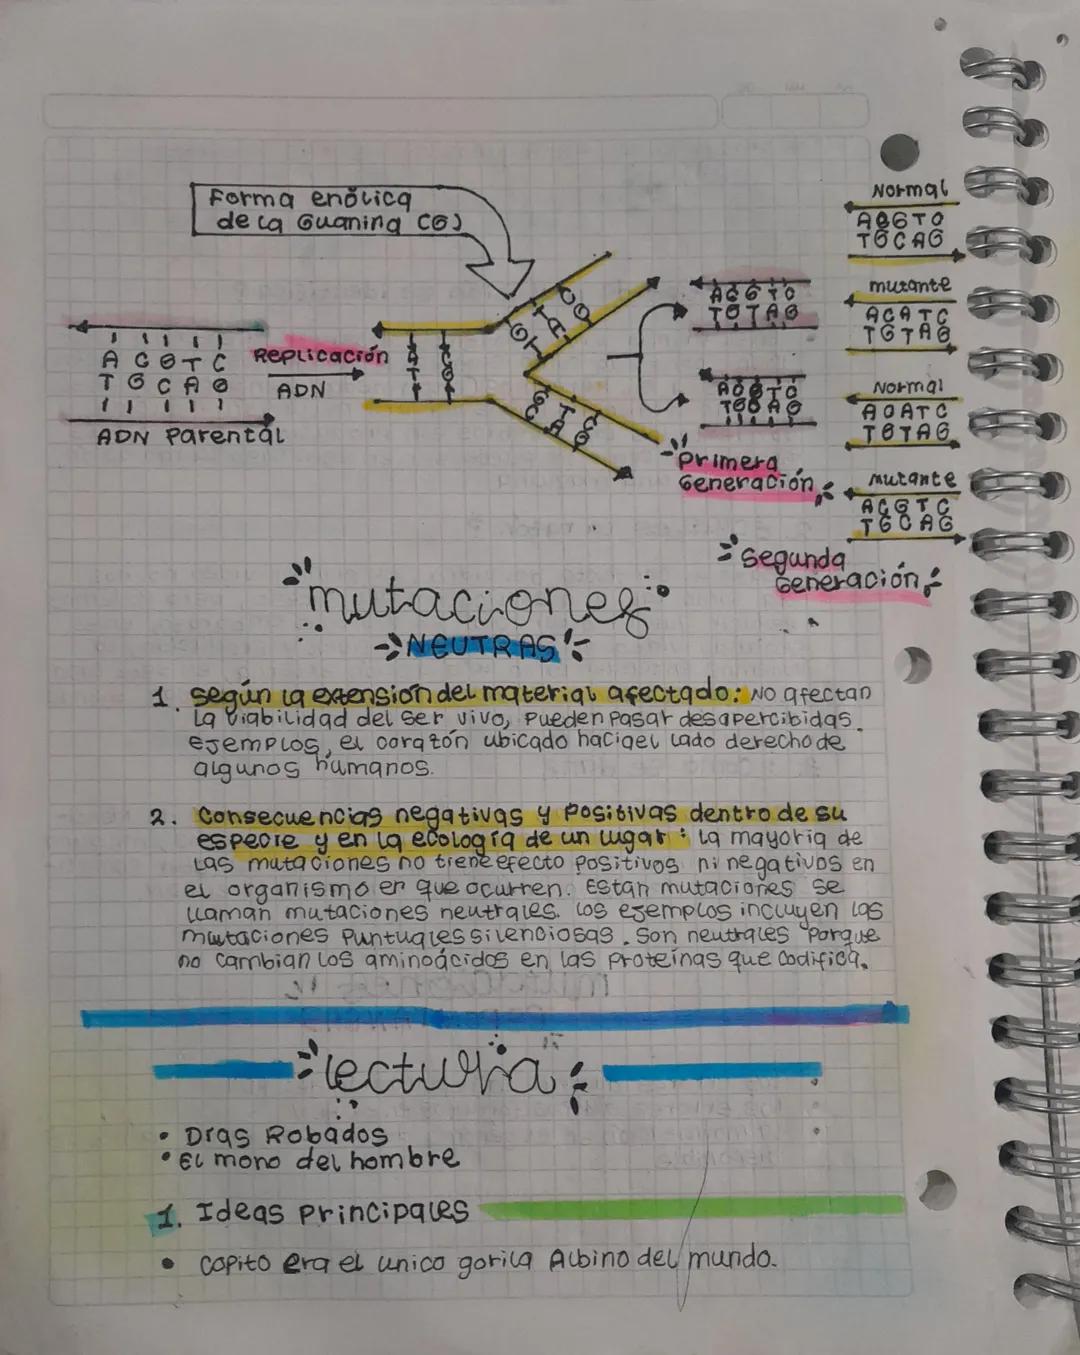 Forma enólica
de la Guanina (G)
A C G T C
T G C A G
ADN Parental
Replicación
ADN
A C
T G
G T C
T A G
G T C
C A G
ACGTC
TGTAG
ACGTC
TGCAG
Primera
Generación
Normal
ACGTC
TGCAG
mutante
ACATC
TGTAG
Normal
ACATC
TGTAG
Mutante
ACGTC
TGCAG
Segunda
Generación
mutaciones
NEUTRAS
1. según la extensión del material afectado: No afectan
la viabilidad del ser vivo, pueden pasar desapercibidas.
ejemplos, el corazón ubicado haciael lado derecho de
algunos humanos.
2. Consecuencias negativas y positivas dentro de su
especie y en la ecología de un lugar: la mayoria de
las mutaciones no tiene efecto positivos ni negativos en
el organismo en que ocurren. Estan mutaciones se
llaman mutaciones neutrales. los ejemplos incluyen las
mutaciones puntuales silenciosas. Son neutrales porque
no cambian los aminoácidos en las proteínas que codifica.
lectura
• Dias Robados
• El mono del hombre
1. Ideas principales
• copito era el unico gorila Albino del mundo.